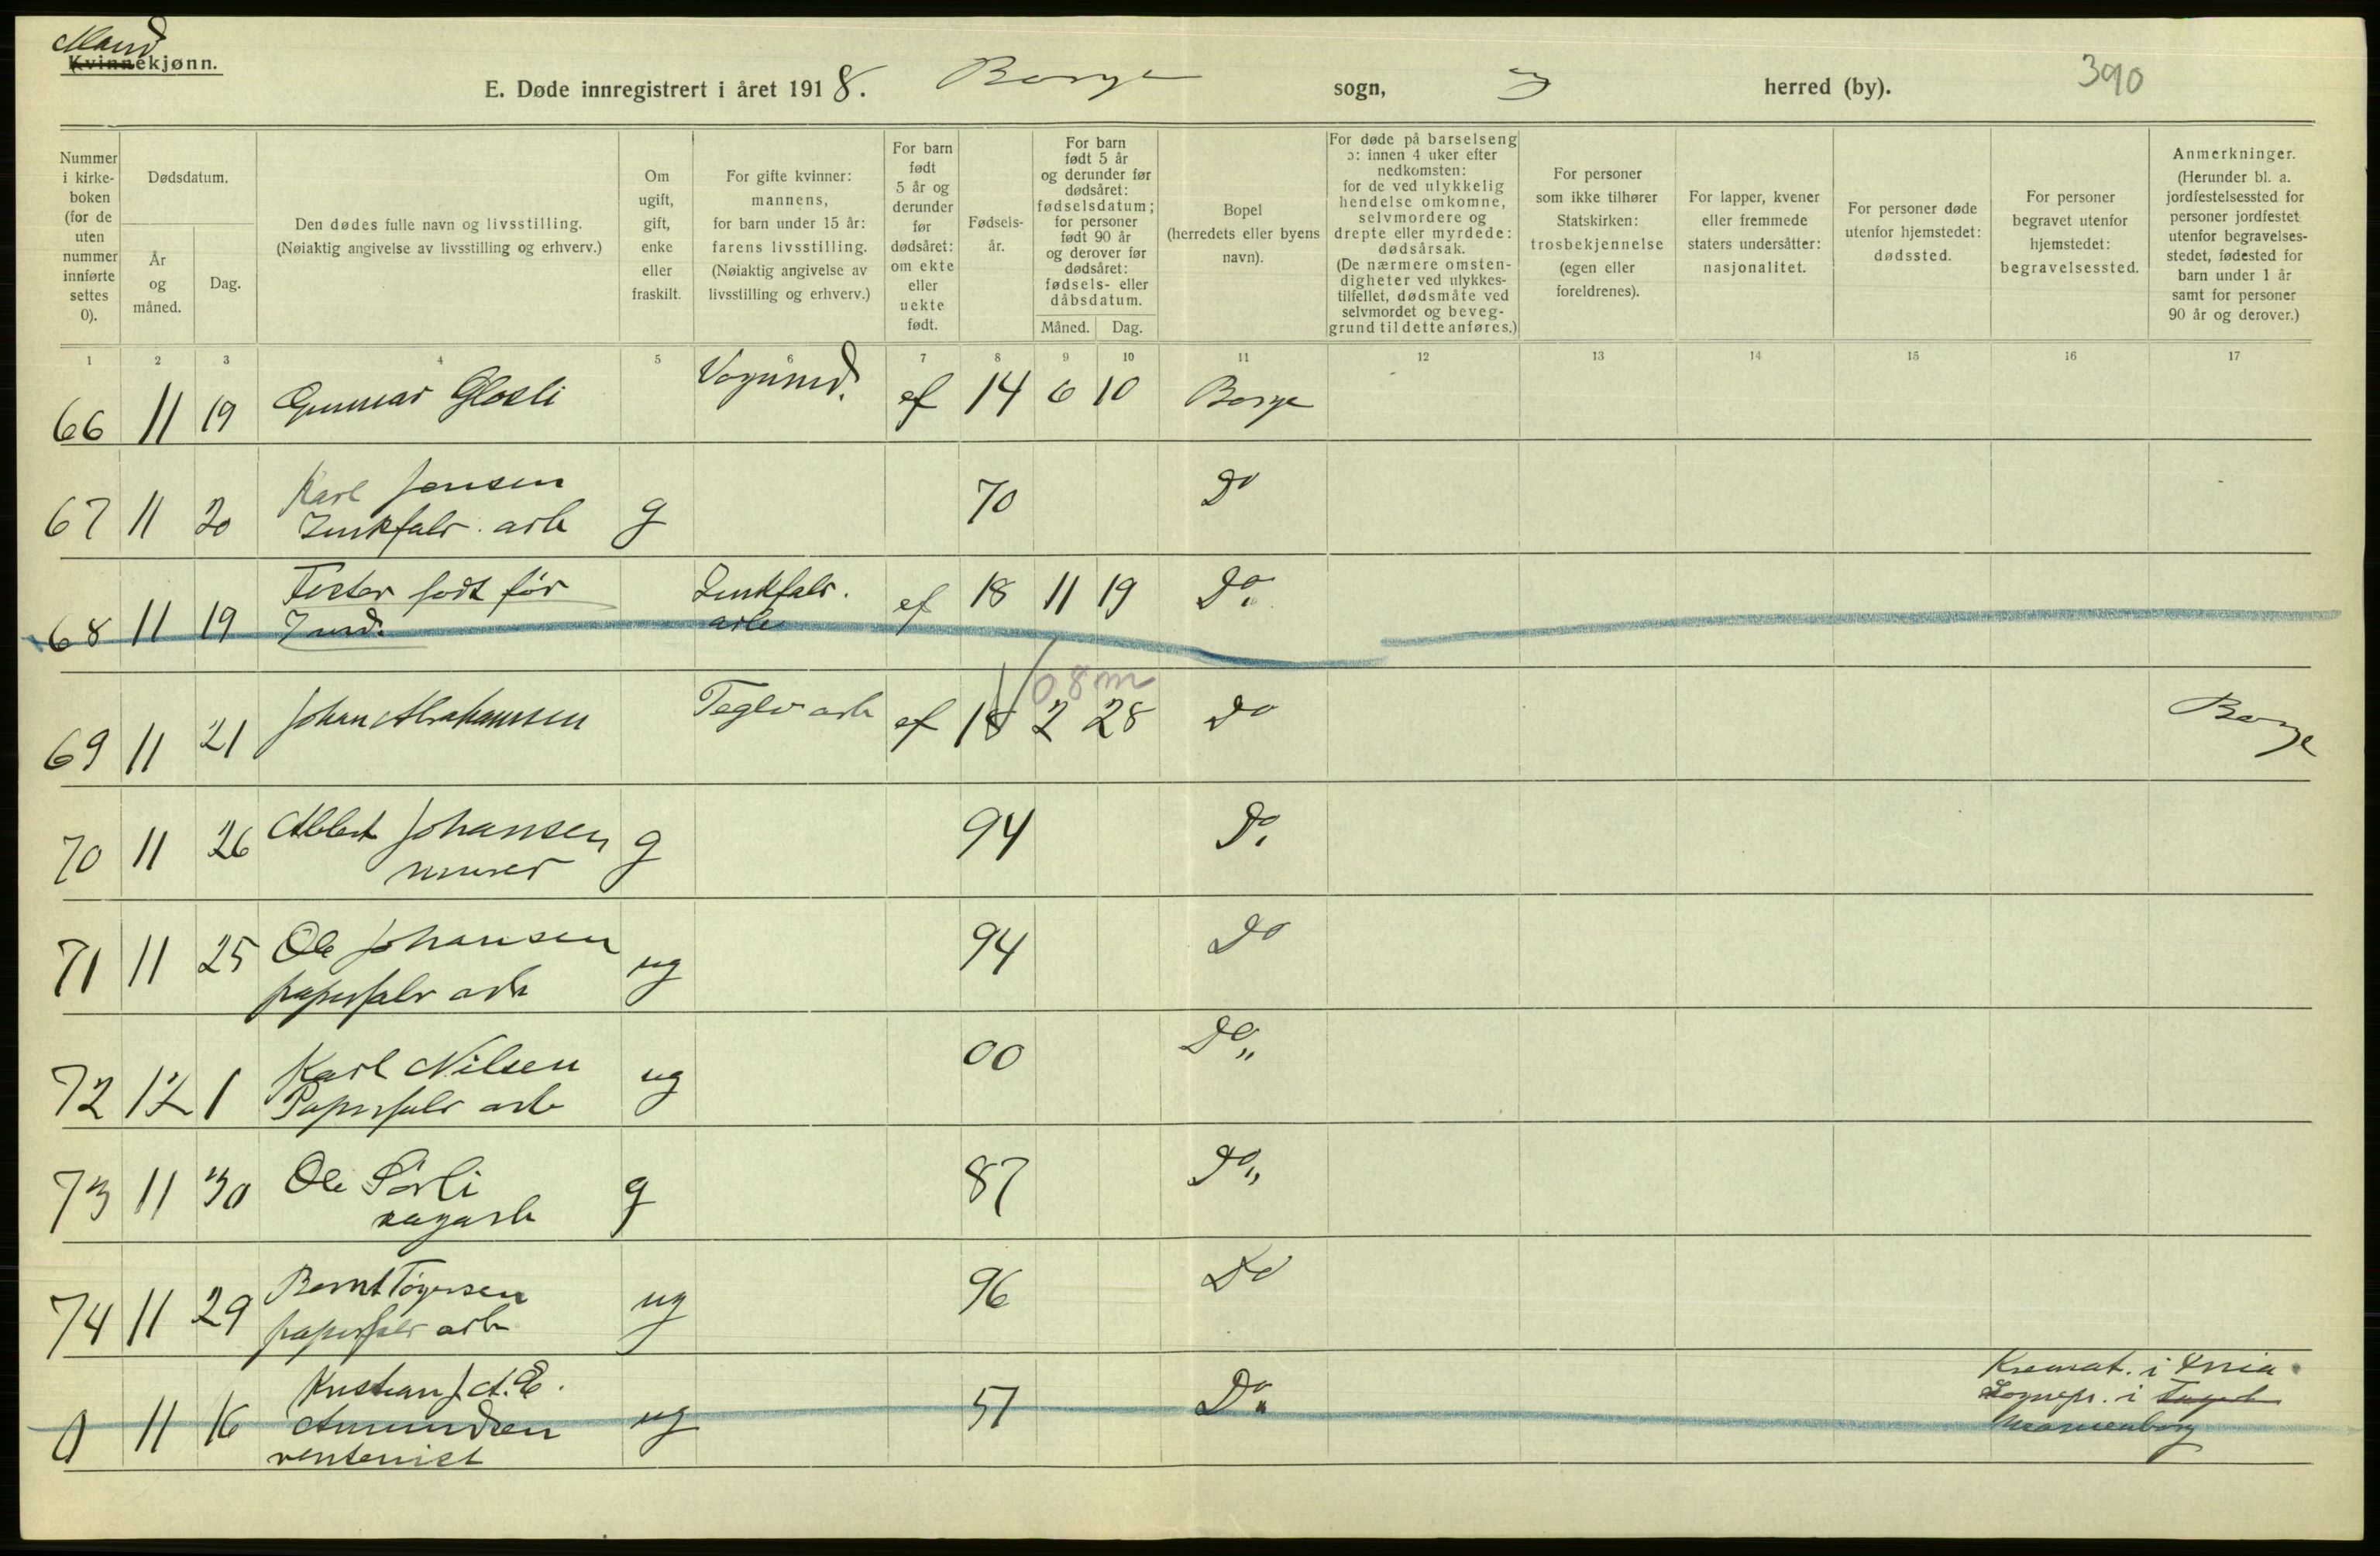 Mand
Kvinnekjønn.
E. Døde innregistrert i året 1918. Borge sogn, herred (by). 390
Nummer i kirke-boken (for de uten nummer innførte settes 0).
Dødsdatum.
År og måned.
Dag.
Den dødes fulle navn og livsstilling.
(Nøiaktig angivelse av livsstilling og erhverv.)
Om ugift, gift, enke eller fraskilt.
For gifte kvinner: mannens, for barn under 15 år: farens livsstilling. (Nøiaktig angivelse av livsstilling og erhverv.)
For barn født 5 år og derunder før dødsåret: om ekte eller uekte født.
Fødsels-år.
For barn født 5 år og derunder før dødsåret: fødselsdatum; for personer født 90 år og derover før dødsåret: fødsels- eller dåbsdatum.
Måned. Dag.
Bopel (herredets eller byens navn).
For døde på barselseng ɔ: innen 4 uker efter nedkomsten: for de ved ulykkelig hendelse omkomne, selvmordere og drepte eller myrdede: dødsårsak. (De nærmere omsten-digheter ved ulykkes-tilfellet, dødsmåte ved selvmordet og beveg-grund til dette anføres.)
For personer som ikke tilhører Statskirken: trosbekjennelse (egen eller foreldrenes).
For lapper, kvener eller fremmede staters undersåtter: nasjonalitet.
For personer døde utenfor hjemstedet: dødssted.
For personer begravet utenfor hjemstedet: begravelsessted.
Anmerkninger. (Herunder bl. a. jordfestelsessted for personer jordfestet utenfor begravelses-stedet, fødested for barn under 1 år samt for personer 90 år og derover.)
1 2 3 4 5 6 7 8 9 10 11 12 13 14 15 16 17
66 11 19 Gunnar Glosli Vognmd. ef 14 6 10 Borge
67 11 20 Karl Jensen g 70 Do
Zinkfabr. arb
68 11 19 Foster født før Zinkfabr. ef 18 11 19 Do
arb
0 8 m
69 11 21 Johan Abrahamsen Teglv arb ef 18 2 28 Do Borge
70 11 26 Albert Johansen g 94 Do
murer
71 11 25 Ole Johansen ug 94 Do
papirfabr arb
72 12 1 Karl Nilsen ug 00 Do
Papirfabr arb
73 11 30 Ole Sørli g 87 Do
sagarb
74 11 29 Bernt Tørgersen ug 96 Do
papirfabr arb
0 11 16 Kristian J. A. E. ug 51 Do Kremat. i Kria
Amundsen Sognepr. i
rentenist